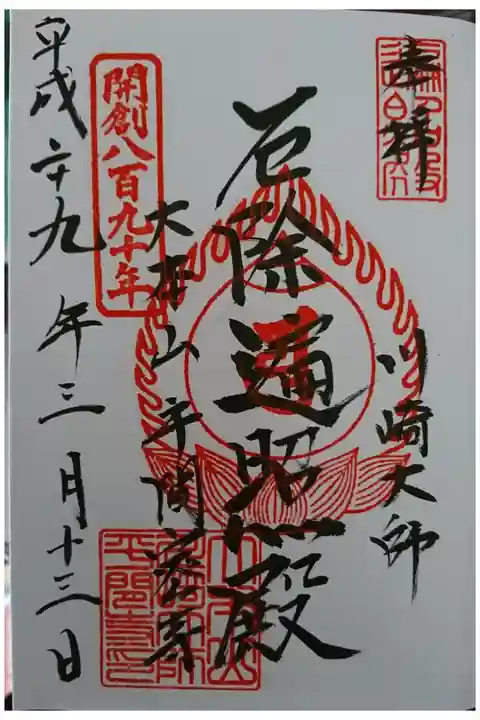 奉拝
川崎大師
厄除遍照殿
大本山平間寺
開創八百九十年
平成二十九年三月十三日